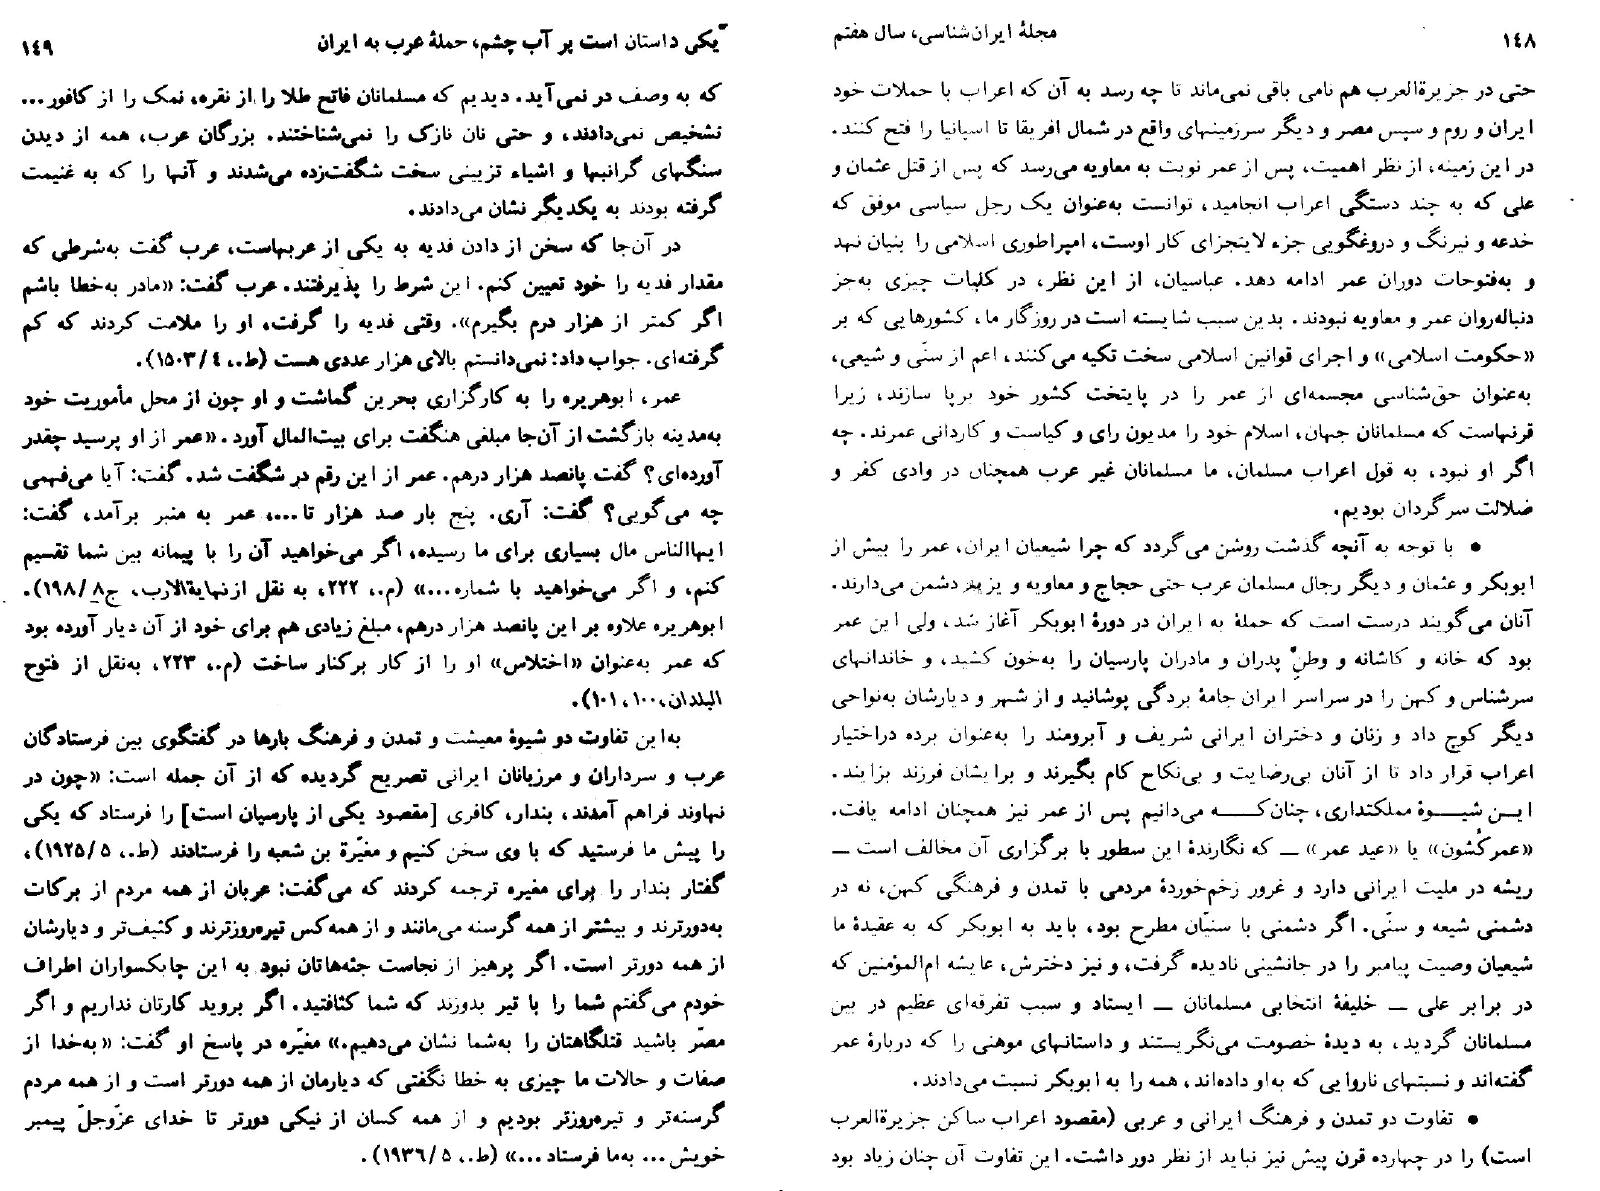 ۱٤۸
مجلهٔ ایران‌شناسی، سال هفتم
حتی در جزیرةالعرب هم نامی باقی نمی‌ماند تا چه رسد به آن که اعراب با حملات خود
ایران و روم و سپس مصر و دیگر سرزمینهای واقع در شمال افریقا تا اسپانیا را فتح کنند.
در این زمینه، از نظر اهمیت، پس از عمر نوبت به معاویه می‌رسد که پس از قتل عثمان و
علی که به چند دستگی اعراب انجامید، توانست به‌عنوان یک رجل سیاسی موفق که
خدعه و نیرنگ و دروغگویی جزء لایتجزای کار اوست، امپراطوری اسلامی را بنیان نهد
و به‌فتوحات دوران عمر ادامه دهد. عباسیان، از این نظر، در کلیات چیزی به‌جز
دنباله‌روان عمر و معاویه نبودند. بدین سبب شایسته است در روزگار ما، کشورهایی که بر
«حکومت اسلامی» و اجرای قوانین اسلامی سخت تکیه می‌کنند، اعم از سنّی و شیعی،
به‌عنوان حق‌شناسی مجسمه‌ای از عمر را در پایتخت کشور خود برپا سازند، زیرا
قرنهاست که مسلمانان جهان، اسلام خود را مدیون رای و کیاست و کاردانی عمرند. چه
اگر او نبود، به قول اعراب مسلمان، ما مسلمانان غیر عرب همچنان در وادی کفر و
ضلالت سرگردان بودیم.
● با توجه به آنچه گذشت روشن می‌گردد که چرا شیعیان ایران، عمر را بیش از
ابوبکر و عثمان و دیگر رجال مسلمان عرب حتی حجاج و معاویه و یزید دشمن می‌دارند.
آنان می‌گویند درست است که حملهٔ به ایران در دورهٔ ابوبکر آغاز شد، ولی این عمر
بود که خانه و کاشانه و وطن پدران و مادران پارسیان را به‌خون کشید، و خاندانهای
سرشناس و کهن را در سراسر ایران جامهٔ بردگی پوشانید و از شهر و دیارشان به‌نواحی
دیگر کوچ داد و زنان و دختران ایرانی شریف و آبرومند را به‌عنوان برده دراختیار
اعراب قرار داد تا از آنان بی‌رضایت و بی‌نکاح کام بگیرند و برایشان فرزند بزایند.
ایـن شیـوهٔ مملکتداری، چنان‌کـه می‌دانیم پس از عمر نیز همچنان ادامه یافت.
«عمرکُشون» یا «عید عمر» ــ که نگارندهٔ این سطور با برگزاری آن مخالف است ــ
ریشه در ملیت ایرانی دارد و غرور زخم‌خوردهٔ مردمی با تمدن و فرهنگی کهن، نه در
دشمنی شیعه و سنّی. اگر دشمنی با سنیّان مطرح بود، باید به ابوبکر که به عقیدهٔ ما
شیعیان وصیت پیامبر را در جانشینی نادیده گرفت، و نیز دخترش، عایشه ام‌المؤمنین که
در برابر علی ــ خلیفهٔ انتخابی مسلمانان ــ ایستاد و سبب تفرقه‌ای عظیم در بین
مسلمانان گردید، به دیدهٔ خصومت می‌نگریستند و داستانهای موهنی را که دربارهٔ عمر
گفته‌اند و نسبتهای ناروایی که به‌او داده‌اند، همه را به ابوبکر نسبت می‌دادند.
● تفاوت دو تمدن و فرهنگ ایرانی و عربی (مقصود اعراب ساکن جزیرةالعرب
است) را در چهارده قرن پیش نیز نباید از نظر دور داشت. این تفاوت آن چنان زیاد بود
"یکی داستان است پر آب چشم، حملهٔ عرب به ایران
۱٤۹
که به وصف در نمی‌آید. دیدیم که مسلمانان فاتح طلا را از نقره، نمک را از کافور...
تشخیص نمی‌دادند، و حتی نان نازک را نمی‌شناختند. بزرگان عرب، همه از دیدن
سنگهای گرانبها و اشیاء تزیینی سخت شگفت‌زده می‌شدند و آنها را که به غنیمت
گرفته بودند به یکدیگر نشان می‌دادند.
در آن‌جا که سخن از دادن فدیه به یکی از عربهاست، عرب گفت به‌شرطی که
مقدار فدیه را خود تعیین کنم. این شرط را پذیرفتند. عرب گفت: «مادر به‌خطا باشم
اگر کمتر از هزار درم بگیرم». وقتی فدیه را گرفت، او را ملامت کردند که کم
گرفته‌ای. جواب داد: نمی‌دانستم بالای هزار عددی هست (ط.، ۱۵۰۳/٤).
عمر، ابوهریره را به کارگزاری بحرین گماشت و او چون از محل مأموریت خود
به‌مدینه بازگشت از آن‌جا مبلغی هنگفت برای بیت‌المال آورد. «عمر از او پرسید چقدر
آورده‌ای؟ گفت پانصد هزار درهم. عمر از این رقم در شگفت شد. گفت: آیا می‌فهمی
چه می‌گویی؟ گفت: آری. پنج بار صد هزار تا...، عمر به منبر برآمد، گفت:
ایهاالناس مال بسیاری برای ما رسیده، اگر می‌خواهید آن را با پیمانه بین شما تقسیم
کنم، و اگر می‌خواهید با شماره...» (م.، ۲۲۲، به نقل ازنهایةالارب، ج۱۹۸/۸).
ابوهریره علاوه بر این پانصد هزار درهم، مبلغ زیادی هم برای خود از آن دیار آورده بود
که عمر به‌عنوان «اختلاس» او را از کار برکنار ساخت (م.، ۲۲۳، به‌نقل از فتوح
البلدان، ۱۰۰، ۱۰۱).
به‌این تفاوت دو شیوهٔ معیشت و تمدن و فرهنگ بارها در گفتگوی بین فرستادگان
عرب و سرداران و مرزبانان ایرانی تصریح گردیده که از آن جمله است: «چون در
نهاوند فراهم آمدند، بندار، کافری [مقصود یکی از پارسیان است] را فرستاد که یکی
را پیش ما فرستید که با وی سخن کنیم و مغیّرة بن شعبه را فرستادند (ط.، ۱۹۲۵/۵)،
گفتار بندار را برای مغیره ترجمه کردند که می‌گفت: عربان از همه مردم از برکات
به‌دورترند و بیشتر از همه گرسنه می‌مانند و از همه‌کس تیره‌روزترند و کثیف‌تر و دیارشان
از همه دورتر است. اگر پرهیز از نجاست جثه‌هاتان نبود به این چابکسواران اطراف
خودم می‌گفتم شما را با تیر بدوزند که شما کثافتید. اگر بروید کارتان نداریم و اگر
مصرّ باشید قتلگاهتان را به‌شما نشان می‌دهیم.» مغیّره در پاسخ او گفت: «به‌خدا از
صفات و حالات ما چیزی به خطا نگفتی که دیارمان از همه دورتر است و از همه مردم
گرسنه‌تر و تیره‌روزتر بودیم و از همه کسان از نیکی دورتر تا خدای عزّوجلّ پیمبر
خویش... به‌ما فرستاد...» (ط.، ۱۹۳۶/۵).